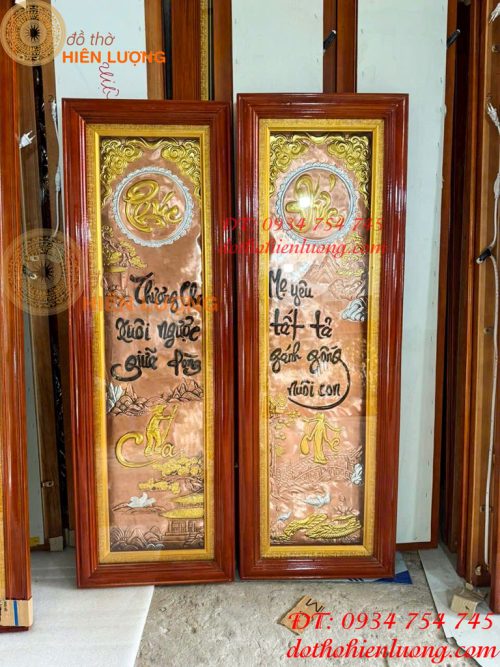 đồ thờ
HIÊN LƯỢNG
ĐT: 0934 754 745
dothohienluong.com
Thương Cha
xuôi ngược
giữa dòng
Cha
Mẹ yêu
tất tả
gánh gồng
nuôi con
Mẹ
ĐT: 0934 754 745
dothohienluong.com